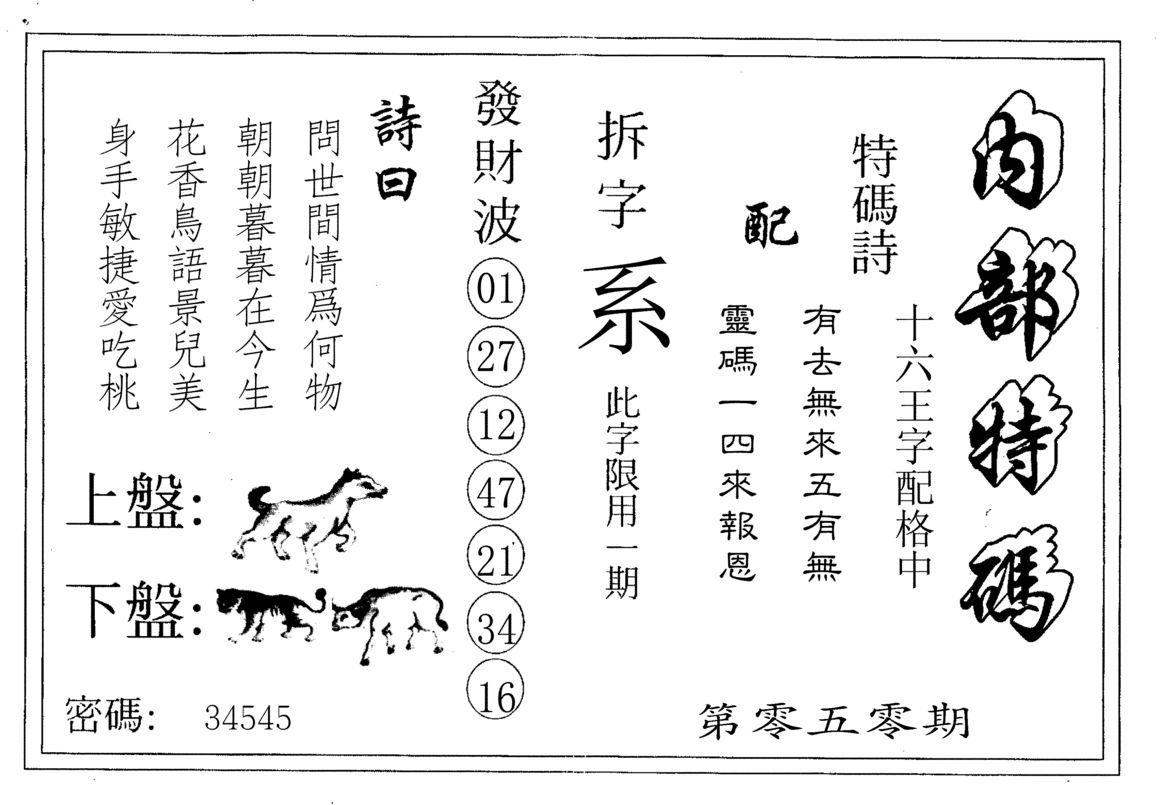 內部特碼
十六王字配格中
特碼詩
有去無來五有無
配
靈碼一四來報恩
第零五零期
拆字
系
此字限用一期
發財波
01
27
12
47
21
34
16
詩曰
問世間情爲何物
朝朝暮暮在今生
花香鳥語景兒美
身手敏捷愛吃桃
上盤：
下盤：
密碼： 34545